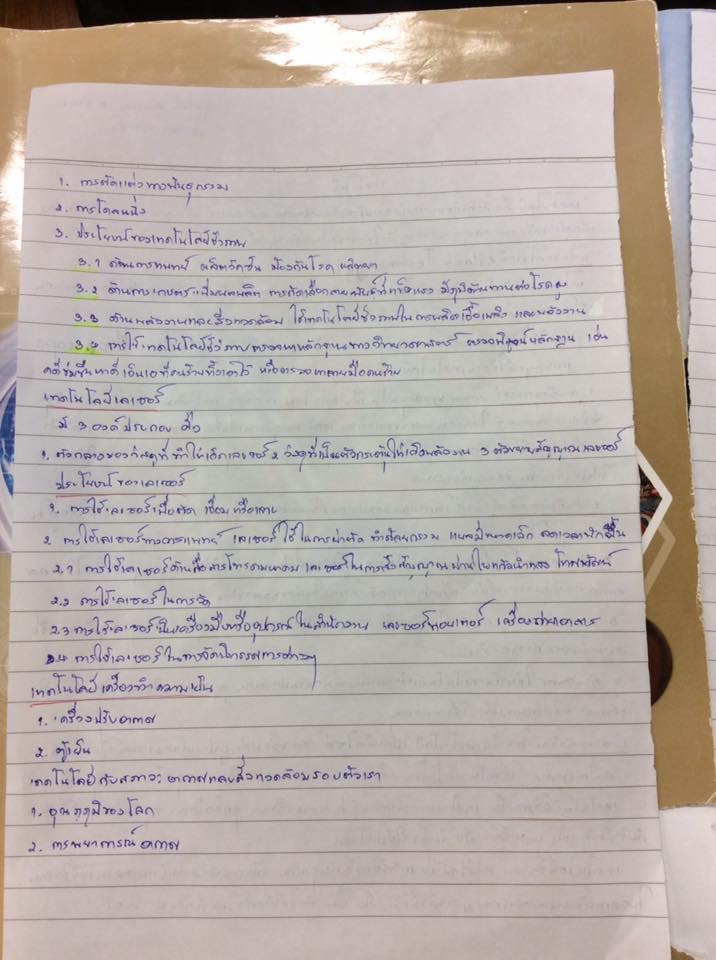 1. การตัดแต่งทางพันธุกรรม
2. การโคลนนิ่ง
3. ประโยชน์ของเทคโนโลยีชีวภาพ
3.1 ด้านการแพทย์ ผลิตวัคซีน ป้องกันโรค ผลิตยา
3.2 ด้านการเกษตร เพิ่มผลผลิต การคัดเลือกสายพันธุ์ที่แข็งแรง มีภูมิต้านทานต่อโรคสูง
3.3 ด้านพลังงานและสิ่งแวดล้อม ใช้เทคโนโลยีชีวภาพในการผลิตเชื้อเพลิง และพลังงาน
3.4 การใช้เทคโนโลยีชีวภาพตรวจหาหลักฐานทางวิทยาศาสตร์ ตรวจพิสูจน์หลักฐาน เช่น
คดีข่มขืนหาดีเอ็นเอที่คนร้ายทิ้งเอาไว้ หรือตรวจหาลายมือคนร้าย
เทคโนโลยีเลเซอร์
มี 3 องค์ประกอบ คือ
1. ตัวกลางของวัสดุที่ทำให้เกิดเลเซอร์ 2 วัสดุที่เป็นตัวกระตุ้นให้เกิดพลังงาน 3 ตัวขยายสัญญาณเลเซอร์
ประโยชน์ของเลเซอร์
1. การใช้เลเซอร์เพื่อตัด เชื่อม หรือเจาะ
2 การใช้เลเซอร์ทางการแพทย์ เลเซอร์ใช้ในการผ่าตัด ทำศัลยกรรม แผลมีขนาดเล็ก ลดเวลาพักฟื้น
2.1 การใช้เลเซอร์ด้านสื่อสารโทรคมนาคม เลเซอร์ในการส่งสัญญาณผ่านใยแก้วนำแสง โทรทัศน์
2.2 การใช้เลเซอร์ในการวัด
2.3 การใช้เลเซอร์เป็นเครื่องมือหรืออุปกรณ์ในสำนักงาน เลเซอร์พอยเตอร์ เครื่องถ่ายเอกสาร
2.4 การใช้เลเซอร์ในการจัดนิทรรศการต่างๆ
เทคโนโลยีเครื่องทำความเย็น
1. เครื่องปรับอากาศ
2. ตู้เย็น
เทคโนโลยีกับสภาวะอากาศและสิ่งแวดล้อมรอบตัวเรา
1. อุณหภูมิของโลก
2. การพยากรณ์อากาศ